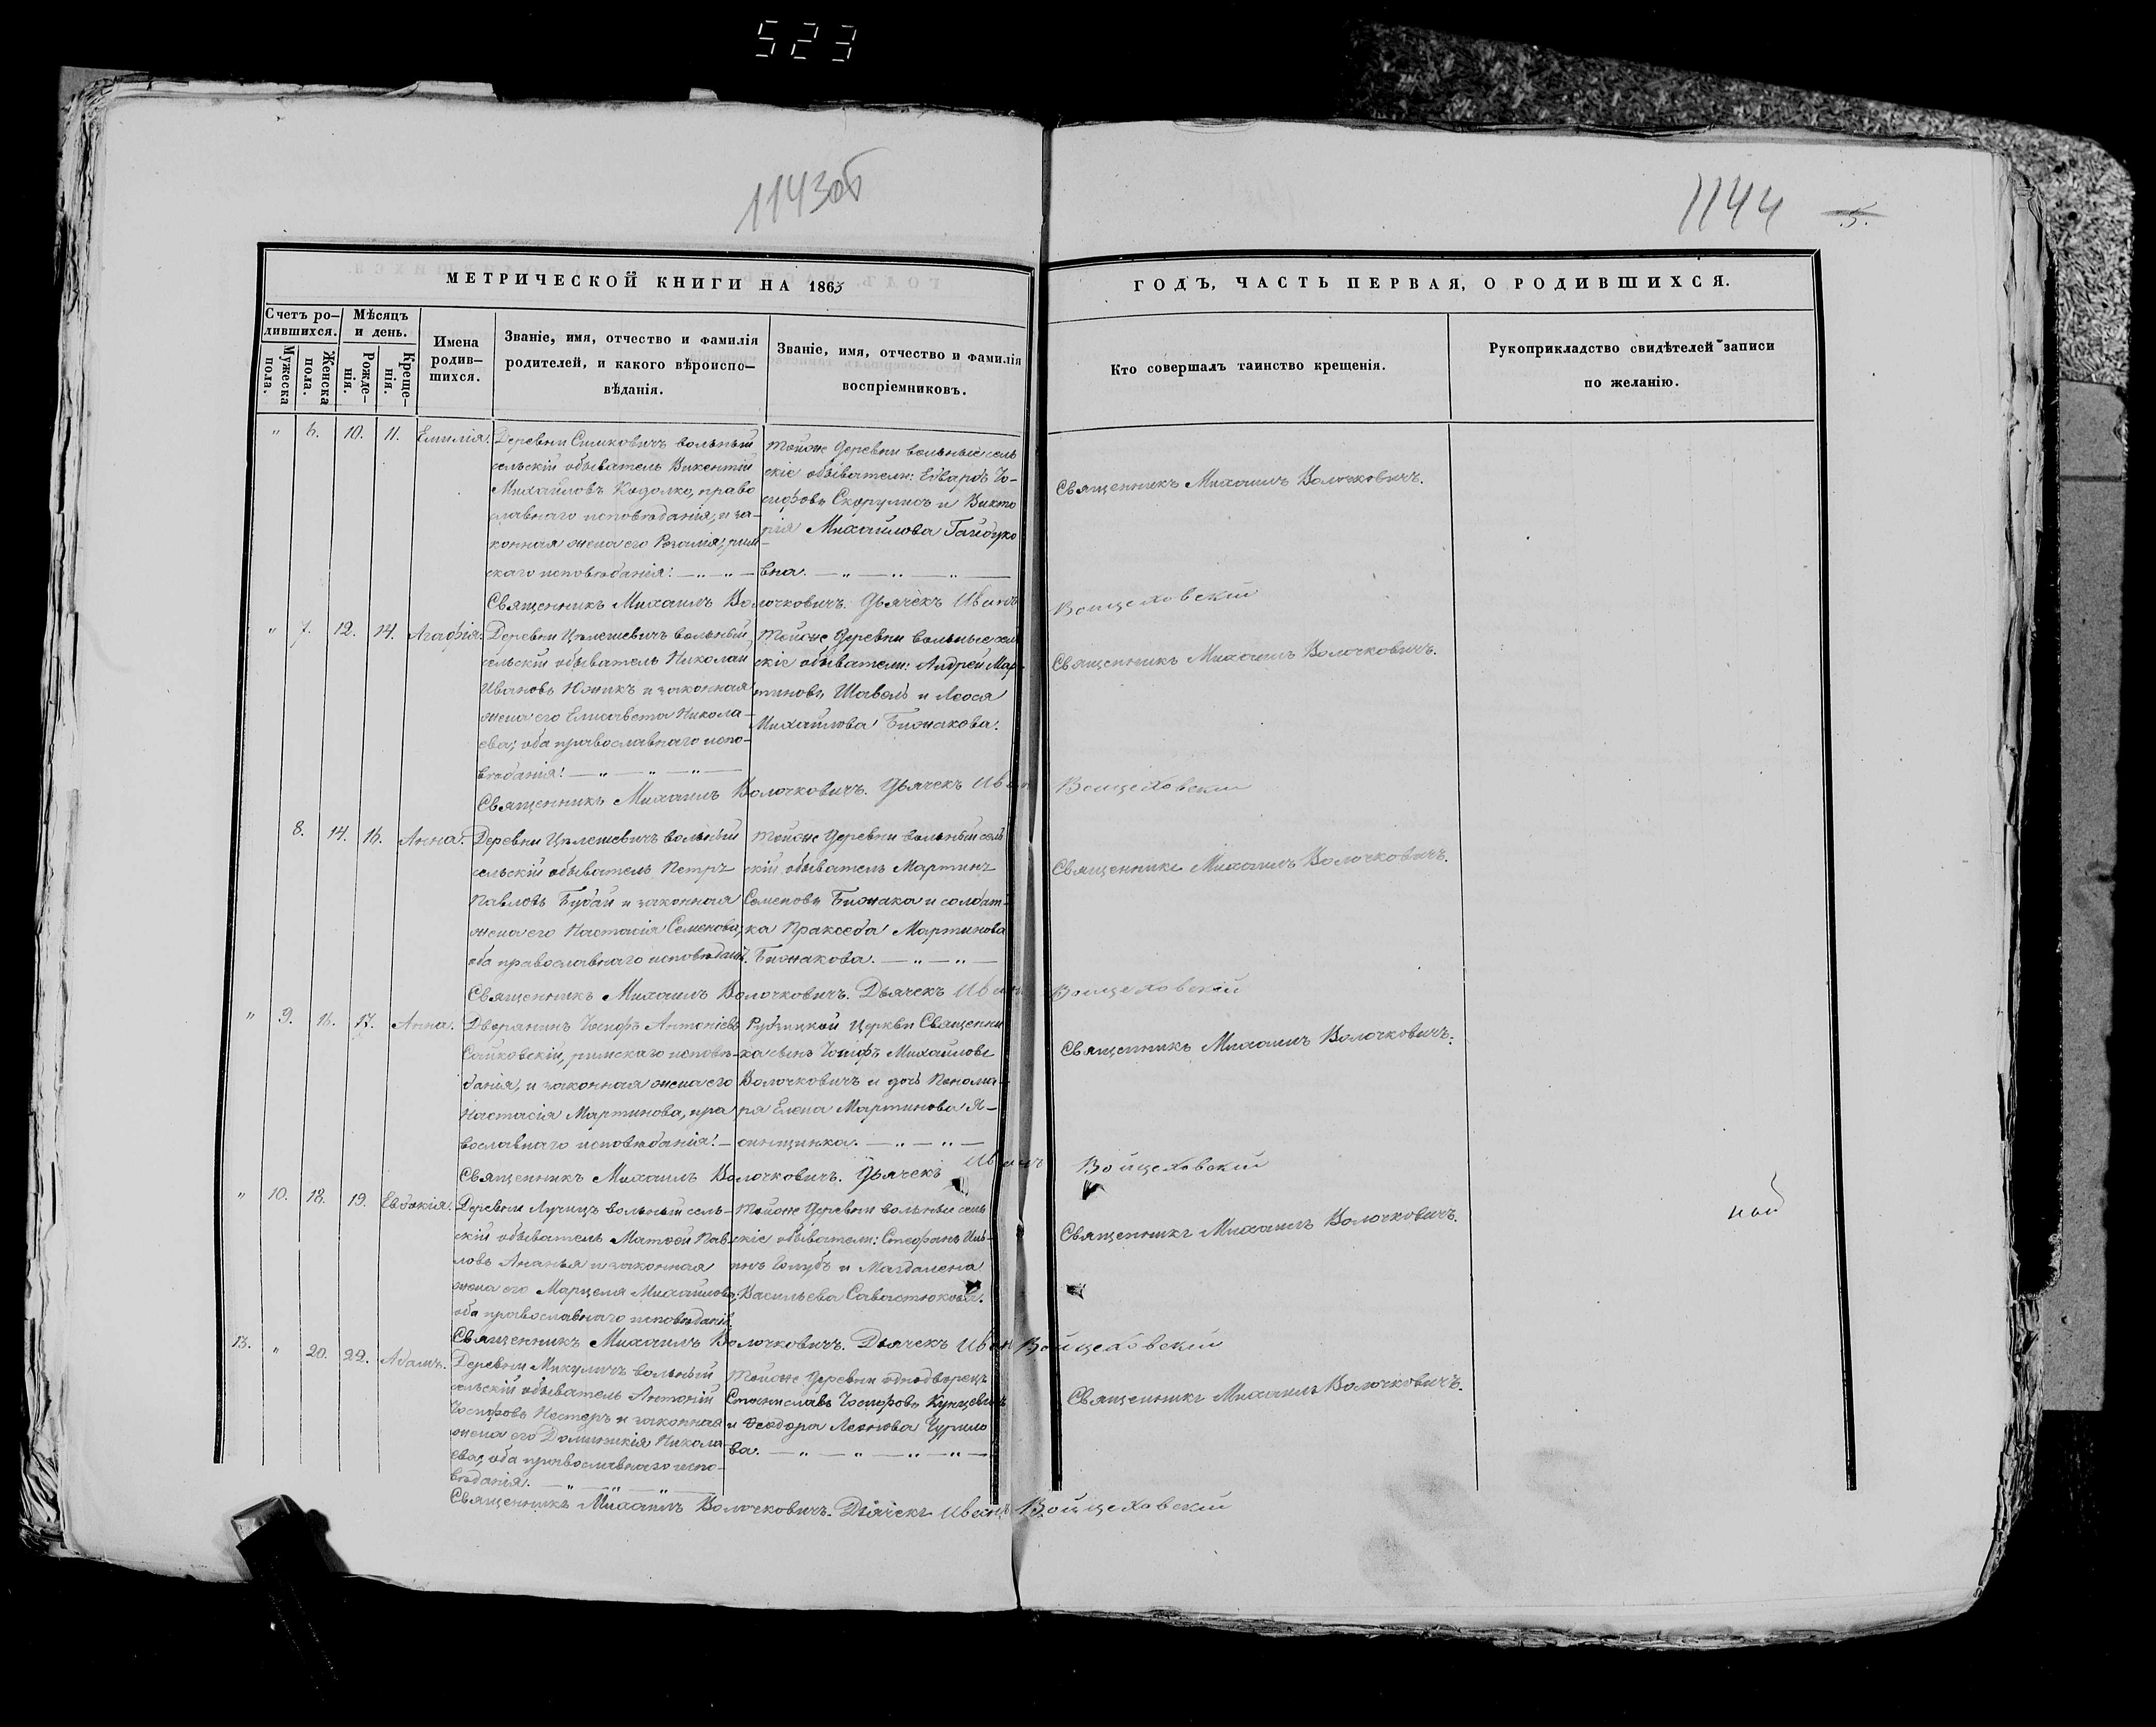 523
1143об
1144 5.
МЕТРИЧЕСКОЙ КНИГИ НА 1863
ГОДЪ, ЧАСТЬ ПЕРВАЯ, О РОДИВШИХСЯ.
Счетъ ро-
дившихся.
Мѣсяцъ
и день.
Мужеска
пола.
Женска
пола.
Рожде-
нія.
Креще-
нія.
Имена
родив-
шихся.
Званіе, имя, отчество и фамилія
родителей, и какого вѣроиспо-
вѣданія.
Званіе, имя, отчество и фамилія
воспріемниковъ.
Кто совершалъ таинство крещенія.
Рукоприкладство свидѣтелей записи
по желанію.
" 6. 10. 11. Емилія.
Деревни Симковичъ вольный
сельскій обыватель Викентій
Михайловъ Кодолко, право
славнаго исповѣданія, и за-
конная жена его Розалія, рим
скаго исповѣданія:
Тойже деревни вольные сель
скіе обыватели: Едвардъ Іо-
сифовъ Скорулисъ и Викто
рія Михайлова Гайдуко
вна.
Священникъ Михаилъ Волочковичъ.
Священникъ Михаилъ Волочковичъ. Дьячекъ Иванъ Войцеховскій
" 7. 12. 14. Агафія.
Деревни Цѣлешевичъ вольный
сельскій обыватель Николай
Ивановъ Южикъ и законная
жена его Елисавета Никола-
ева; оба православнаго испо-
вѣданія:
Тойже деревни вольные сель
скіе обыватели: Андрей Мар-
тиновъ Шавель и Лёося
Михайлова Бижакова.
Священникъ Михаилъ Волочковичъ.
Священникъ Михаилъ Волочковичъ. Дьячекъ Иванъ Войцеховскій
8. 14. 16. Анна.
Деревни Цѣлешевичъ вольный
сельскій обыватель Петръ
Павловъ Будай и законная
жена его Настасія Семенова,
оба православнаго исповѣданія.
Тойже деревни вольный сель
скій обыватель Мартинъ
Семеновъ Бижака и солдат-
ка Праксeда Мартинова
Бижакова.
Священникъ Михаилъ Волочковичъ.
Священникъ Михаилъ Волочковичъ. Дьячекъ Иванъ Войцеховскій
" 9. 16. 17. Анна.
Дворянинъ Іосифъ Антоніевъ
Сайковскій, римскаго исповѣ-
данія, и законная жена его
Настасія Мартинова, пра
вославнаго исповѣданія:
Рубчицкой Церкви Священни
ка сынъ Іосифъ Михайловъ
Волочковичъ и дочь Понома-
ря Елена Мартинова Я-
синщинка.
Священникъ Михаилъ Волочковичъ.
Священникъ Михаилъ Волочковичъ. Дьячекъ Иванъ Войцеховскій
" 10. 18. 19. Евдокія.
Деревни Лучицъ вольный сель-
скій обыватель Матѳей Пав-
ловъ Ананья и законная
жена его Марцеля Михайлова,
оба православнаго исповѣданія.
Тойже деревни вольные сель
скіе обыватели: Стефанъ
Голубъ и Магдалена
Васильева Савастюкова.
Священникъ Михаилъ Волочковичъ.
Священникъ Михаилъ Волочковичъ. Дьячекъ Иванъ Войцеховскій
13. " 20. 22. Адамъ.
Деревни Микуличъ вольный
сельскій обыватель Антоній
Іосифовъ Нестеръ и законная
жена его Доминикія Никола
ева, оба православнаго испо-
вѣданія.
Тойже деревни однодворецъ
Станиславъ Іосифовъ Кунцевичъ
и Ѳеодора Леонова Чурило
ва.
Священникъ Михаилъ Волочковичъ.
Священникъ Михаилъ Волочковичъ. Дьячекъ Иванъ Войцеховскій